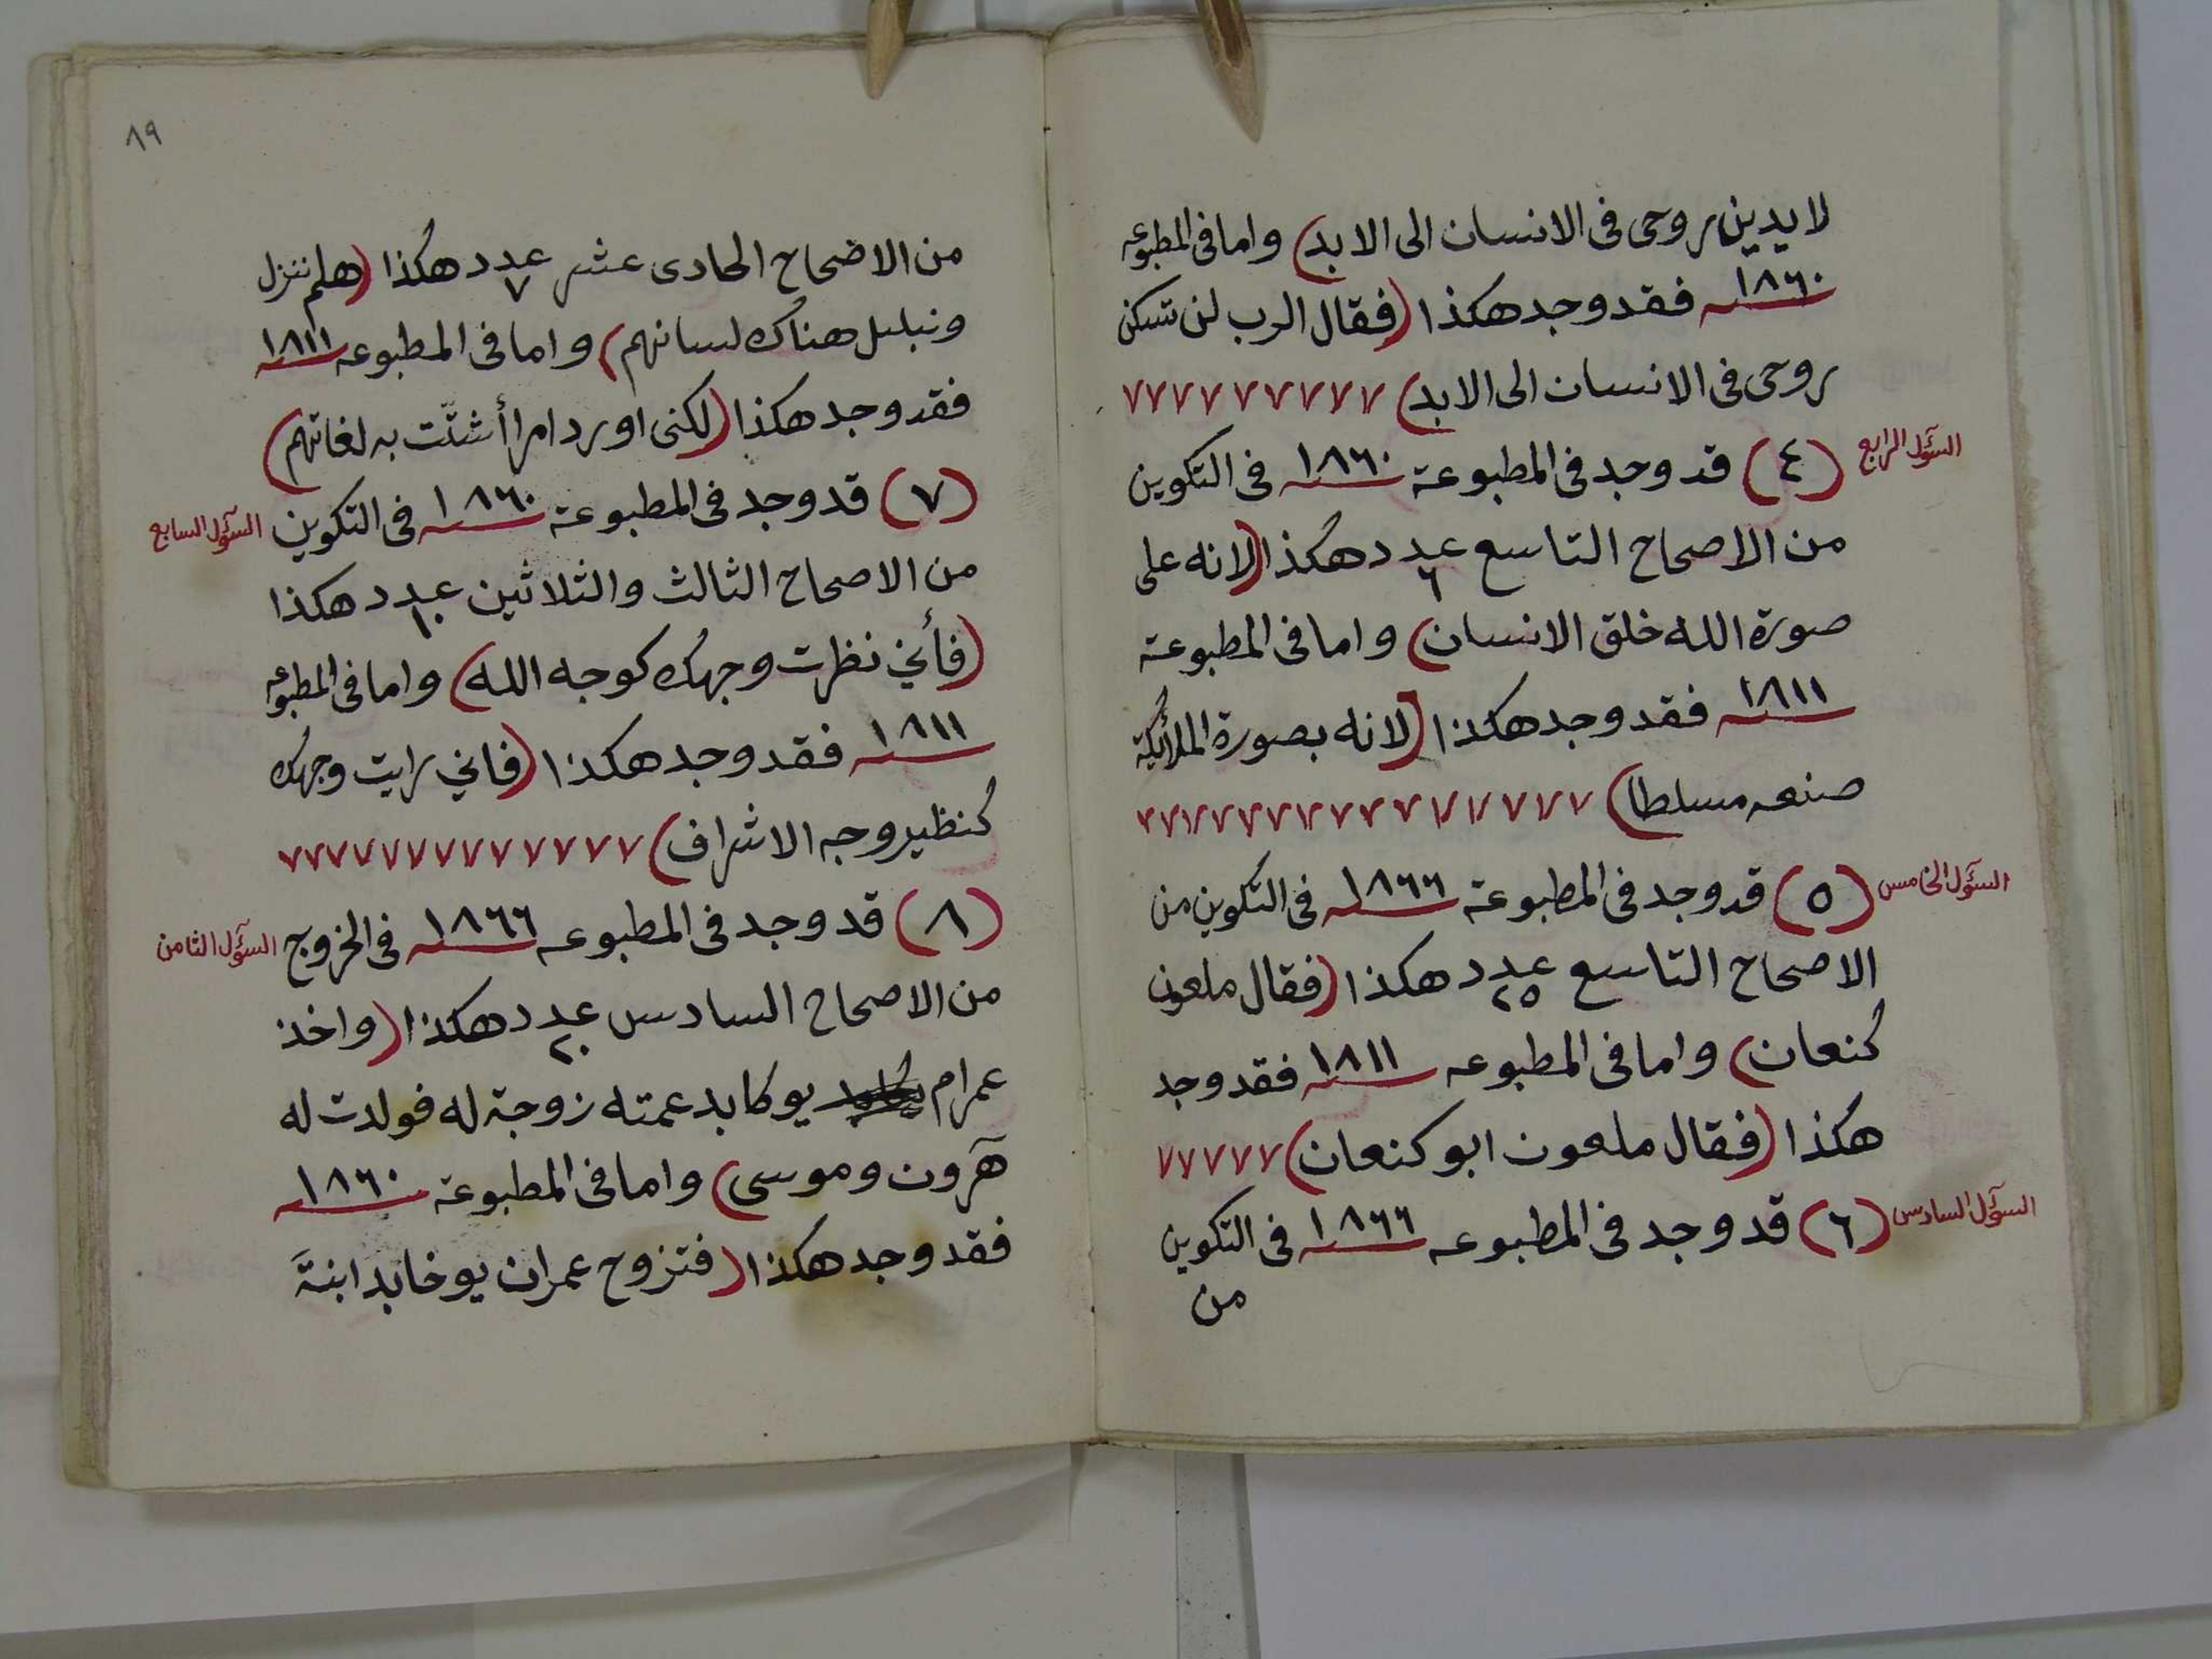 لا يدين روحى فى الانسان الى الابد) واما فى المطبوعه
١٨٦٠ فقد وجد هكذا (فقال الرب لن تسكن
روحى فى الانسان الى الابد) ٧٧٧٧٧٧٧٧٧
السؤل الرابع
(٤) قد وجد فى المطبوعة ١٨٦٠ فى التكوين
من الاصحاح التاسع عدد ٦ هكذا (لانه على
صورة الله خلق الانسان) واما فى المطبوعة
١٨١١ فقد وجد هكذا (لانه بصورة الملائكة
صنعه مسلطا)
السؤل الخامس
(٥) قد وجد فى المطبوعة ١٨٦٦ فى التكوين من
الاصحاح التاسع عدد ٢٥ هكذا (فقال ملعون
كنعان) واما فى المطبوعه ١٨١١ فقد وجد
هكذا (فقال ملعون ابو كنعان) ٧٧٧٧٧
السؤل السادس
(٦) قد وجد فى المطبوعه ١٨٦٦ فى التكوين
من
٨٩
من الاضحاح الحادى عشر عدد ٧ هكذا (هلم ننزل
ونبلبل هناك لسانهم) واما فى المطبوعه ١٨١١
فقد وجد هكذا (لكنى اورد امرا أشتّت به لغاتهم)
السؤل السابع
(٧) قد وجد فى المطبوعة ١٨٦٠ فى التكوين
من الاصحاح الثالث والثلاثين عدد ١٠ هكذا
(فأني نظرت وجهك كوجه الله) واما فى المطبوعه
١٨١١ فقد وجد هكذا (فاني رايت وجهك
كنظير وجه الاشراف) ٧٧٧٧٧٧٧٧٧٧٧٧٧
السؤل الثامن
(٨) قد وجد فى المطبوعه ١٨٦٦ فى الخروج
من الاصحاح السادس عدد ٢٠ هكذا (واخذ
عمرام يوكابد عمته زوجة له فولدت له
هٓرون وموسى) واما فى المطبوعة ١٨٦٠
فقد وجد هكذا (فتزوج عمران يوخابد ابنة